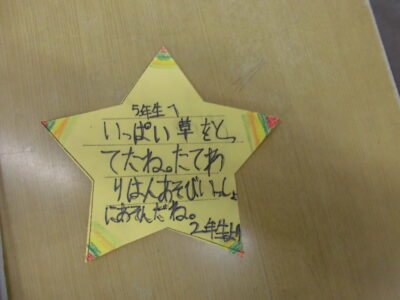 5年生へ
いっぱい草をとっ
てたね。たてわ
りは人あそびいっしょ
にあそんだね。
2年生より